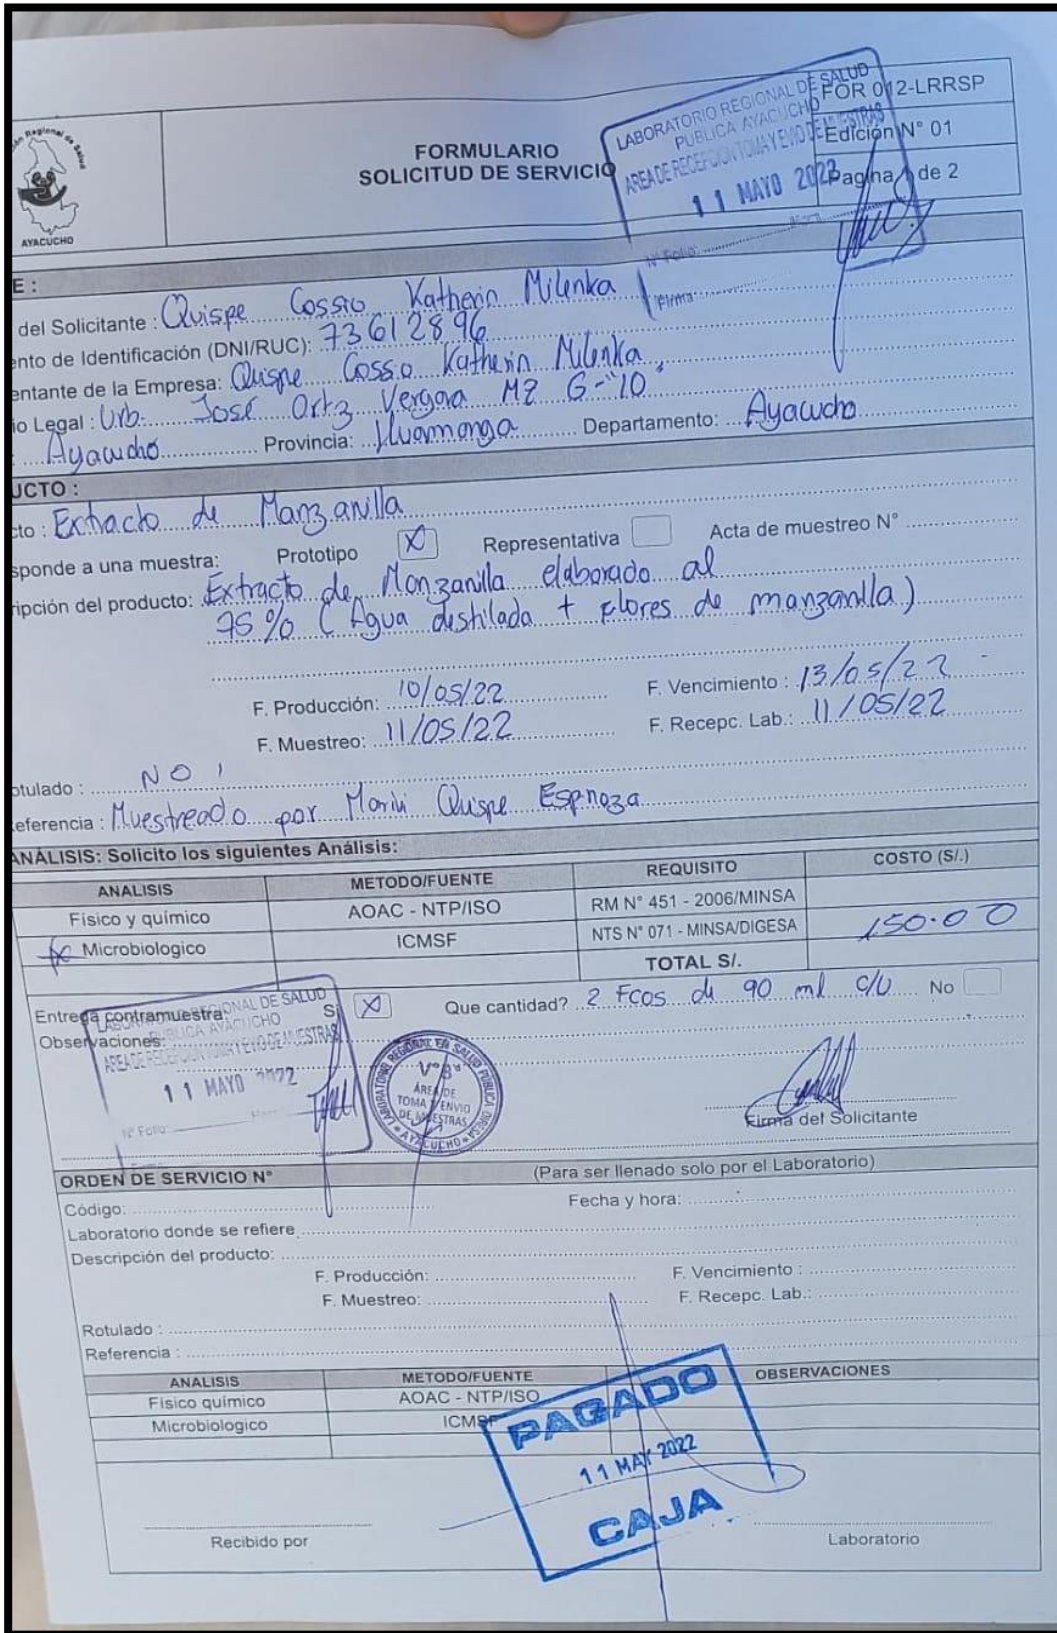 AYACUCHO
FORMULARIO
SOLICITUD DE SERVICIO
FOR 012-LRRSP
Edición N° 01
Pagina 1 de 2
LABORATORIO REGIONAL DE SALUD
PUBLICA AYACUCHO
AREA DE RECEPCION TOMA Y EMIO DE MUESTRAS
11 MAYO 2022
N° Folio:
Firma
E :
del Solicitante : Quispe Cossio Katherin Milenka
ento de Identificación (DNI/RUC): 73612896
entante de la Empresa: Quispe Cossio Katherin Milenka
io Legal : Urb. José Ortz Vergara MZ G-"10"
Ayacucho Provincia: Huamanga Departamento: Ayacucho
UCTO :
cto : Extracto de Manzanilla
sponde a una muestra: Prototipo X Representativa Acta de muestreo N°
ripción del producto: Extracto de Manzanilla elaborado al
75% (Agua destilada + flores de manzanilla)
F. Producción: 10/05/22 F. Vencimiento : 13/05/22
F. Muestreo: 11/05/22 F. Recepc. Lab.: 11/05/22
otulado : NO
eferencia : Muestreado por Marivi Quispe Espnoza
ANÁLISIS: Solicito los siguientes Análisis:
ANALISIS METODO/FUENTE REQUISITO COSTO (S/.)
Físico y químico AOAC - NTP/ISO RM N° 451 - 2006/MINSA
Microbiologico ICMSF NTS N° 071 - MINSA/DIGESA 150.00
TOTAL S/.
Entrega contramuestra: Si X Que cantidad? 2 Fcos de 90 ml c/u No
Observaciones:
LABORATORIO REGIONAL DE SALUD
PUBLICA AYACUCHO
AREA DE RECEPCION TOMA Y EMIO DE MUESTRAS
11 MAYO 2022
N° Folio:
LABORATORIO REGIONAL EN SALUD PUBLICA DIRESA AYACUCHO
V°B°
ÁREA DE
TOMA Y ENVIO
DE MUESTRAS
Firma del Solicitante
ORDEN DE SERVICIO N° (Para ser llenado solo por el Laboratorio)
Código: Fecha y hora:
Laboratorio donde se refiere
Descripción del producto:
F. Producción: F. Vencimiento :
F. Muestreo: F. Recepc. Lab.:
Rotulado :
Referencia :
ANALISIS METODO/FUENTE OBSERVACIONES
Físico químico AOAC - NTP/ISO
Microbiologico ICMSF
PAGADO
11 MAY 2022
CAJA
Recibido por Laboratorio